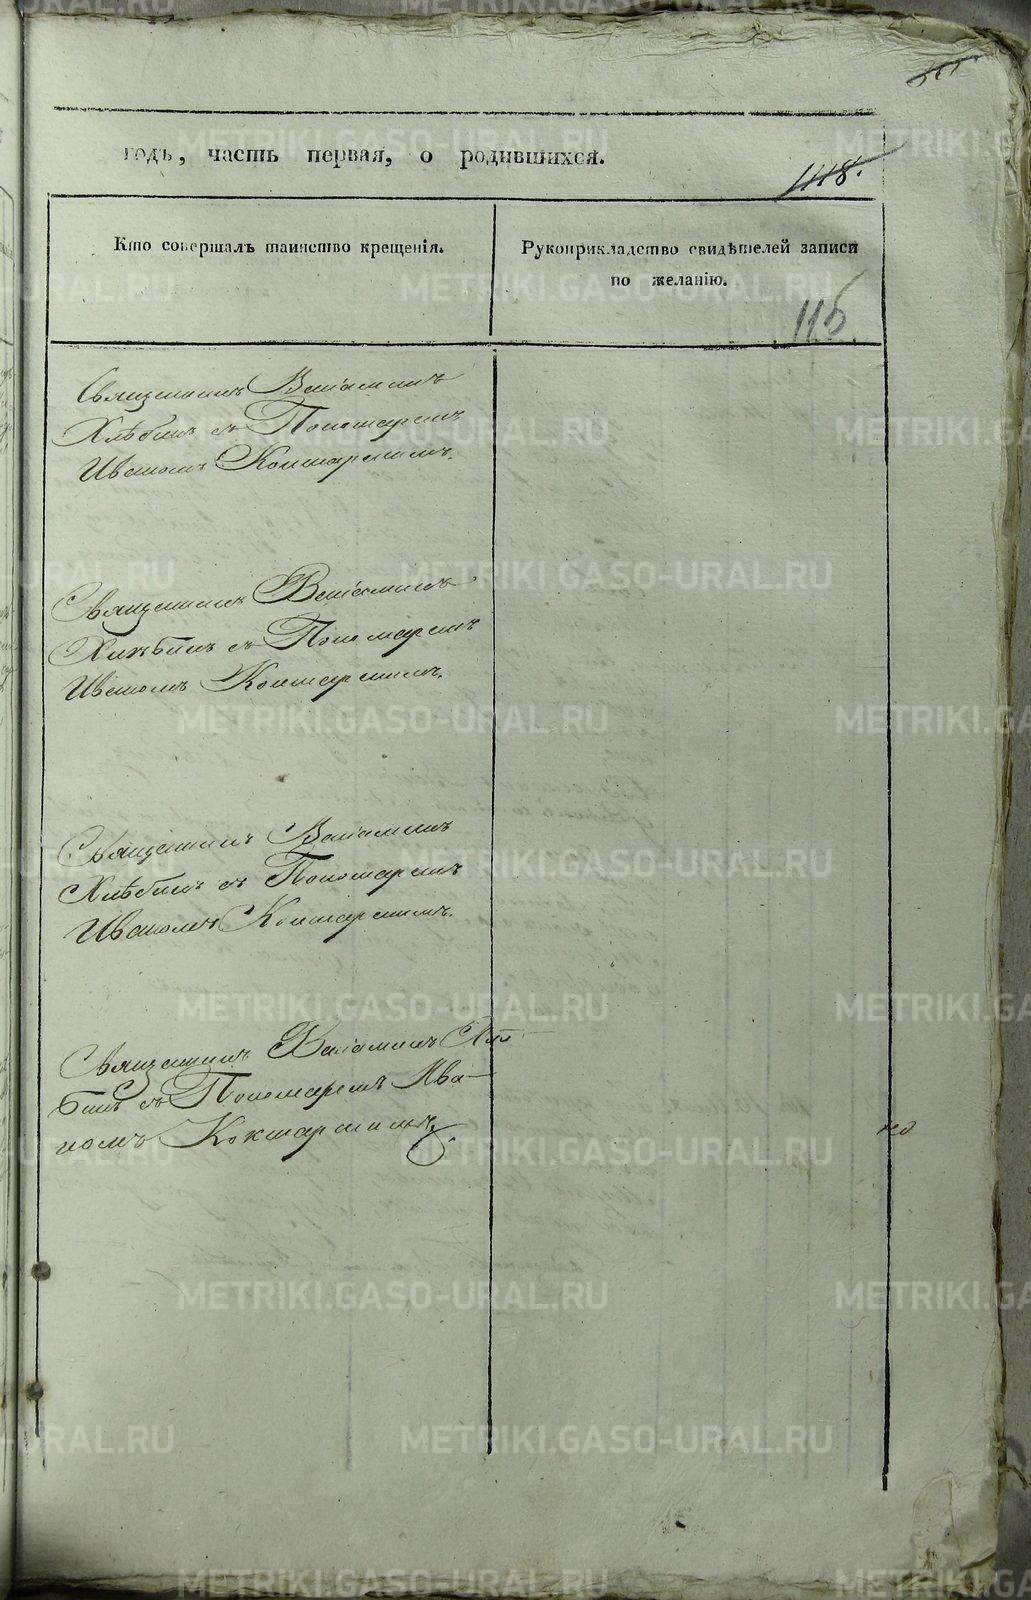 годъ, часть первая, о родившихся.
1118.
Кто совершалъ таинство крещенія.
Рукоприкладство свидѣтелей записи
по желанію.
115
Священникъ Веніаминъ
Хлѣбинъ съ Пономаремъ
Иваномъ Коктарминымъ.
Священникъ Веніаминъ
Хлѣбинъ съ Пономаремъ
Иваномъ Коктарминымъ.
Священникъ Веніаминъ
Хлѣбинъ съ Пономаремъ
Иваномъ Коктарминымъ.
Священникъ Веніаминъ Хлѣ-
бинъ съ Пономаремъ Ива-
номъ Коктарминымъ.
METRIKI.GASO-URAL.RU